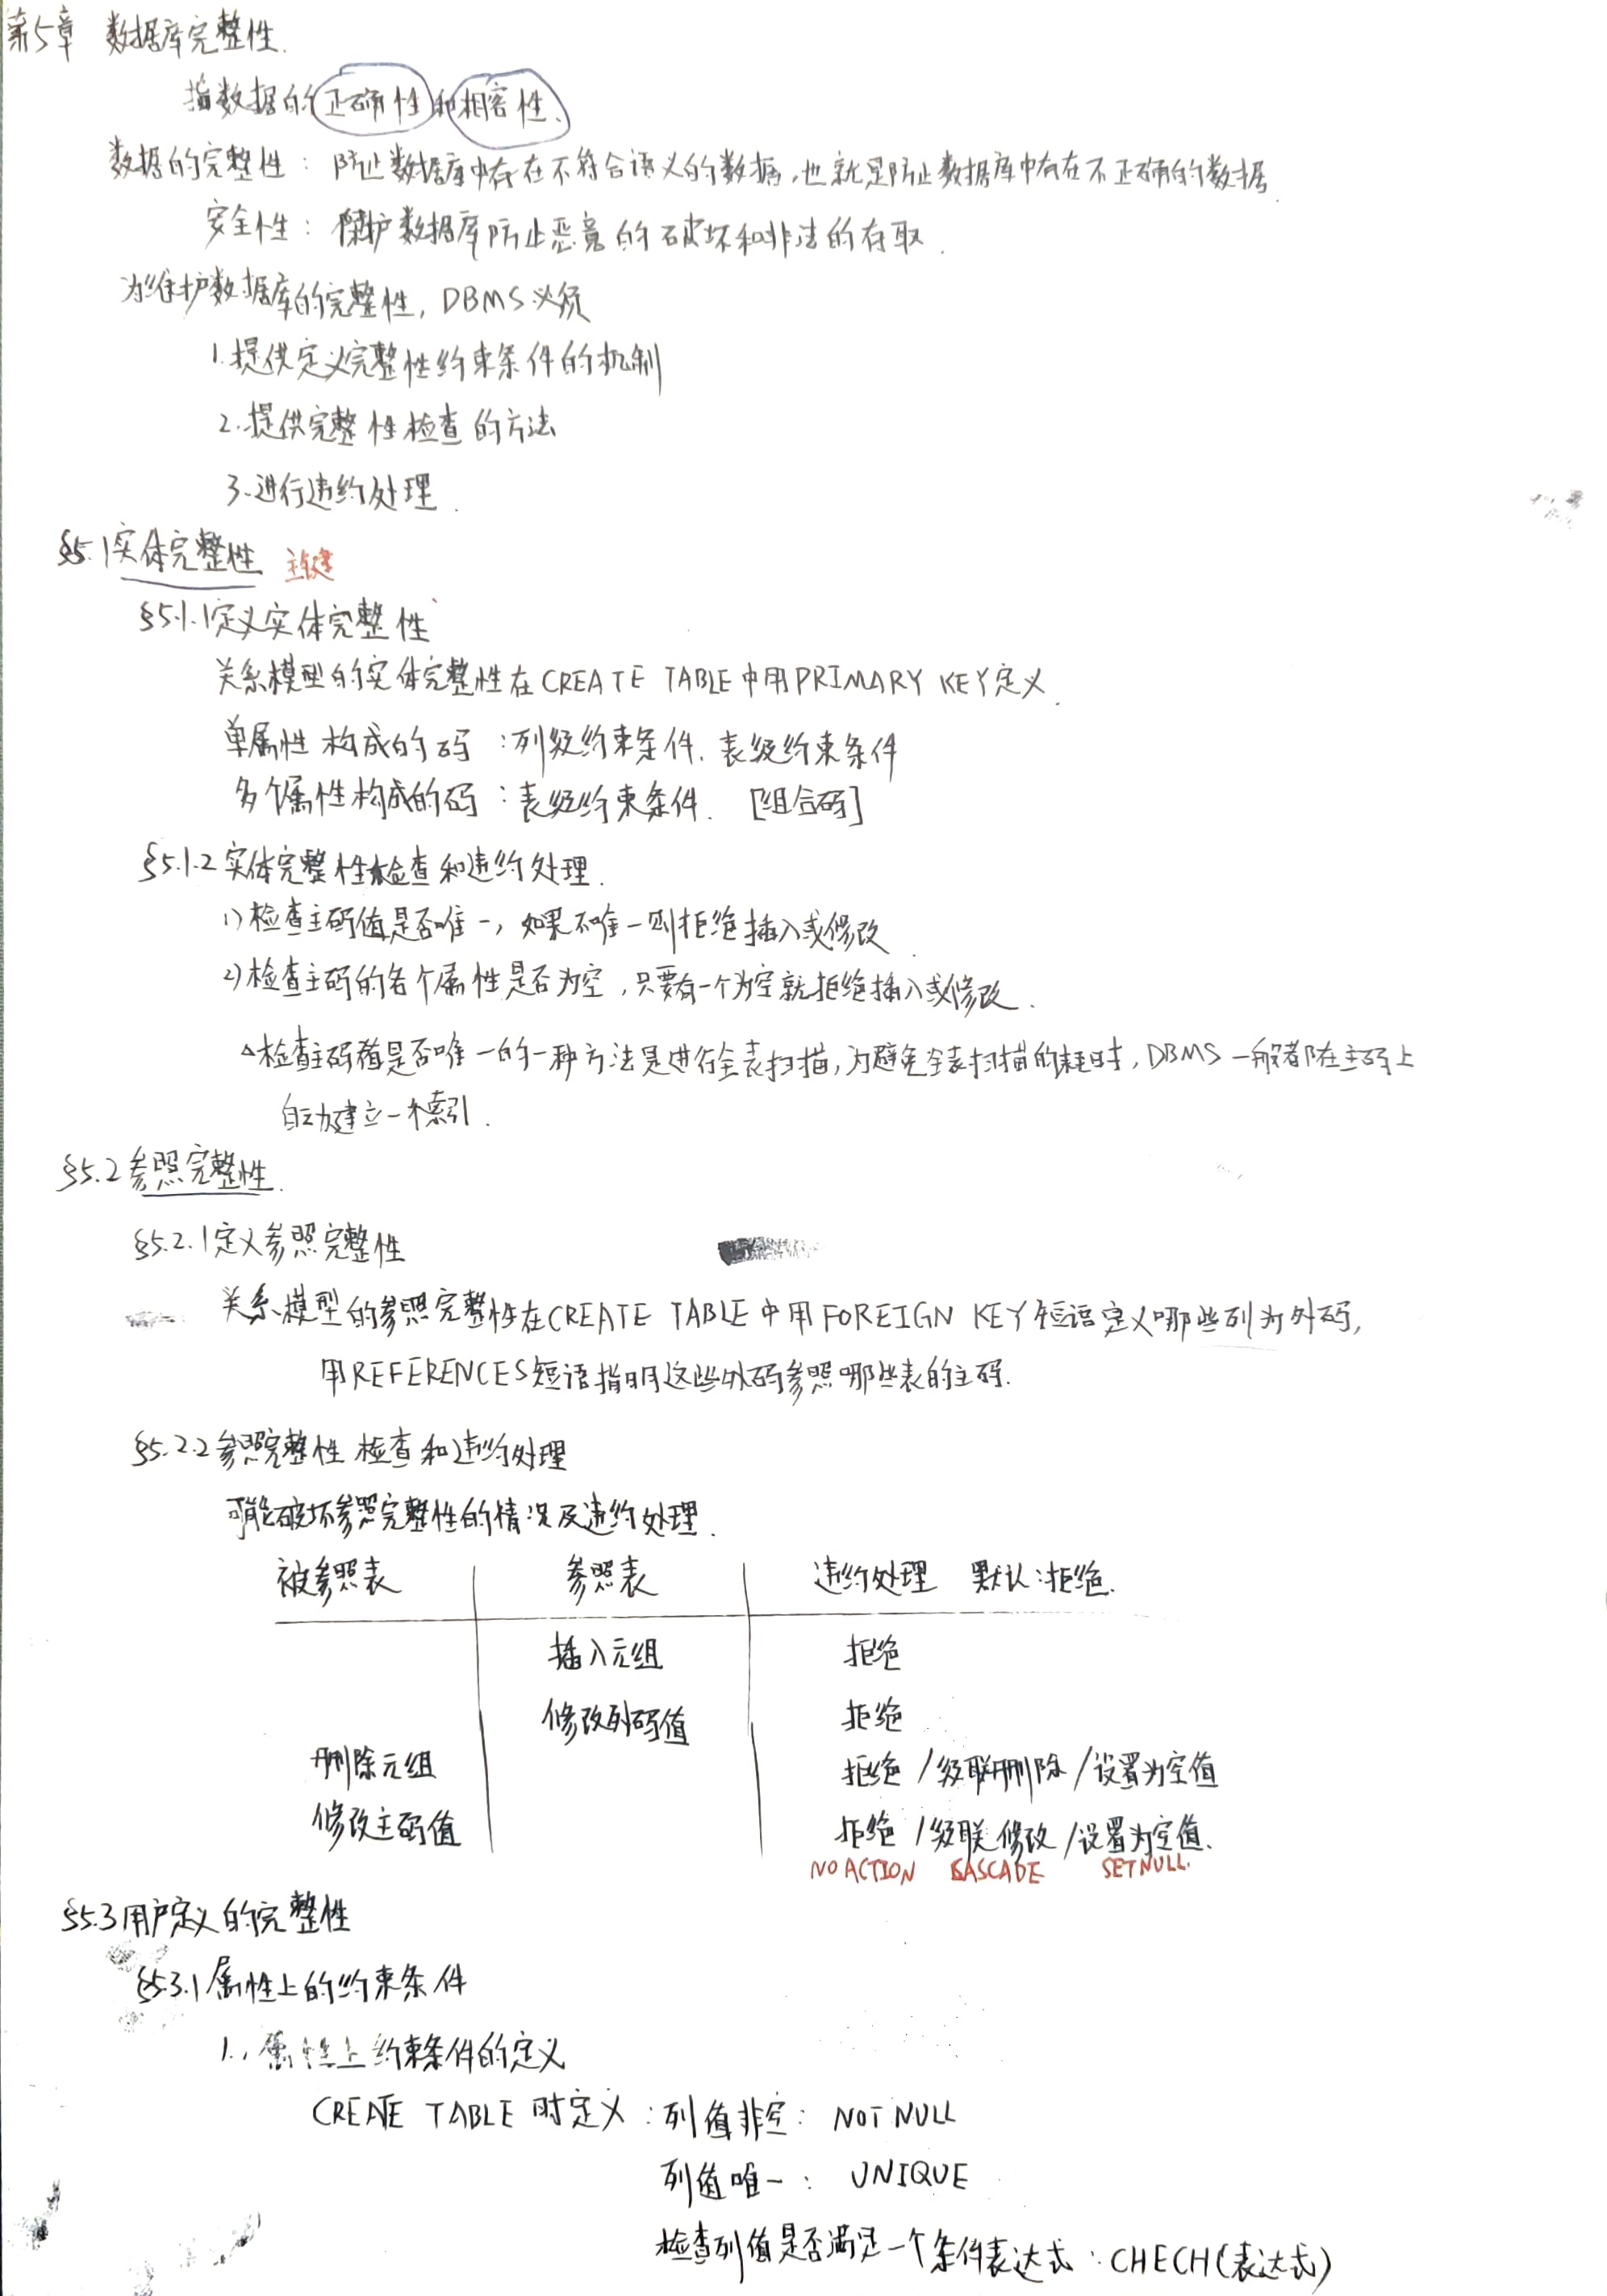 第5章 数据库完整性.
指数据的正确性和相容性.
数据的完整性：防止数据库中存在不符合语义的数据,也就是防止数据库中存在不正确的数据.
安全性：保护数据库防止恶意的破坏和非法的存取.
为维护数据库的完整性, DBMS必须
1.提供定义完整性约束条件的机制
2.提供完整性检查的方法
3.进行违约处理.
§5.1实体完整性 主键
§5.1.1定义实体完整性
关系模型的实体完整性在CREATE TABLE中用PRIMARY KEY定义.
单属性构成的码：列级约束条件.表级约束条件
多个属性构成的码：表级约束条件. [组合码]
§5.1.2实体完整性检查和违约处理.
1)检查主码值是否唯一, 如果不唯一则拒绝插入或修改
2)检查主码的各个属性是否为空,只要有一个为空就拒绝插入或修改.
△检查主码值是否唯一的一种方法是进行全表扫描,为避免全表扫描的耗时, DBMS一般都在主码上
自动建立一个索引.
§5.2参照完整性.
§5.2.1定义参照完整性
关系模型的参照完整性在CREATE TABLE中用FOREIGN KEY短语定义哪些列为外码,
用REFERENCES短语指明这些外码参照哪些表的主码.
§5.2.2参照完整性检查和违约处理
可能破坏参照完整性的情况及违约处理.
被参照表 参照表 违约处理 默认:拒绝.
插入元组 拒绝
修改外码值 拒绝
删除元组 拒绝/级联删除/设置为空值
修改主码值 拒绝/级联修改/设置为空值.
NO ACTION CASCADE SETNULL.
§5.3用户定义的完整性
§5.3.1属性上的约束条件
1.、属性上约束条件的定义
CREATE TABLE时定义：列值非空： NOT NULL
列值唯一： UNIQUE
检查列值是否满足一个条件表达式：CHECH(表达式)